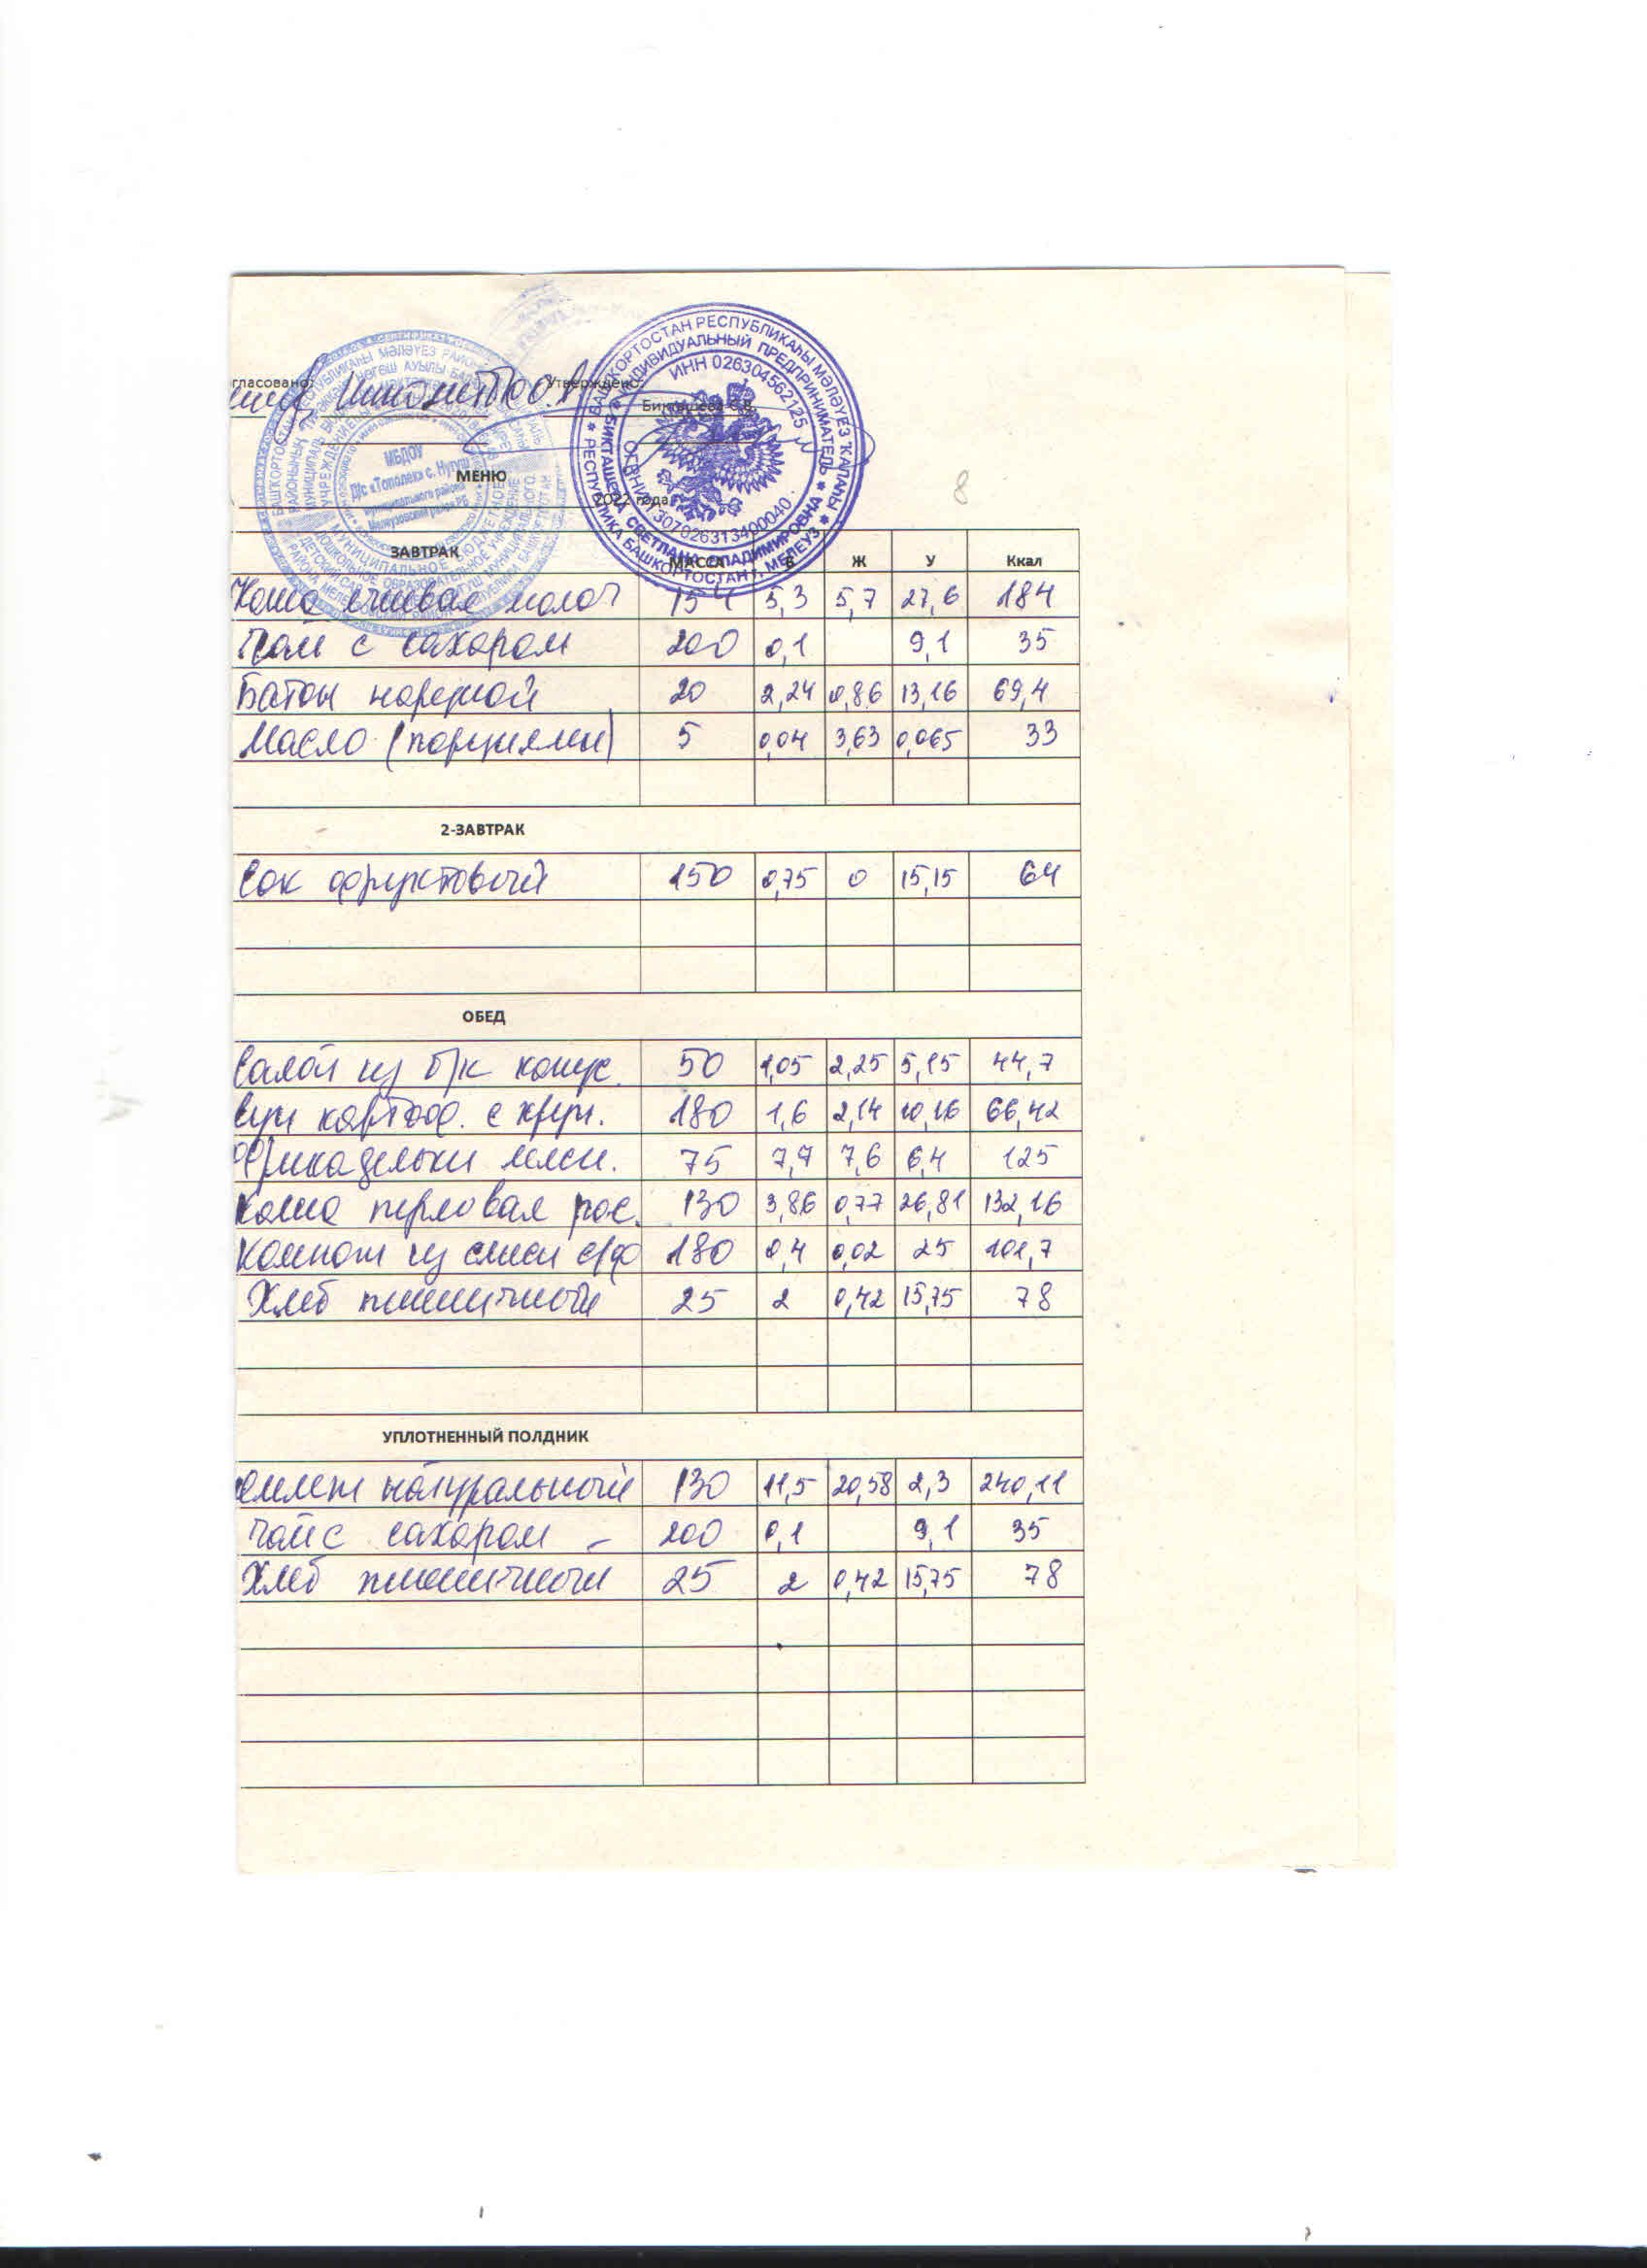 гласовано: Утверждено:
Бикташева С.В.
МБДОУ
Д/с «Тополек» с. Нугуш
муниципального района
Мелеузовский район РБ
БАШКОРТОСТАН РЕСПУБЛИКАҺЫ МӘЛӘҮЕЗ ҠАЛАҺЫ
ИНДИВИДУАЛЬНЫЙ ПРЕДПРИНИМАТЕЛЬ
ИНН 026304562125
БИКТАШЕВА СВЕТЛАНА ВЛАДИМИРОВНА
РЕСПУБЛИКА БАШКОРТОСТАН г. МЕЛЕУЗ
МЕНЮ
2022 года
8
ЗАВТРАК МАССА Б Ж У Ккал
Каша ячневая молоч 154 5,3 5,7 27,6 184
Чай с сахаром 200 0,1 9,1 35
Батон нарезной 20 2,24 0,86 13,16 69,4
Масло (порциями) 5 0,04 3,63 0,065 33
2-ЗАВТРАК
Сок фруктовый 150 0,75 0 15,15 64
ОБЕД
Салат из б/к капус. 50 1,05 2,25 5,15 44,7
Суп картоф. с круп. 180 1,6 2,14 10,16 66,42
Фрикадельки мясн. 75 7,7 7,6 6,4 125
Каша перловая рас. 130 3,86 0,77 26,81 132,16
Компот из смеси с/ф 180 0,4 0,02 25 101,7
Хлеб пшеничный 25 2 0,42 15,75 78
УПЛОТНЕННЫЙ ПОЛДНИК
омлет натуральный 130 11,5 20,58 2,3 240,11
Чай с сахаром – 200 0,1 9,1 35
Хлеб пшеничный 25 2 0,42 15,75 78